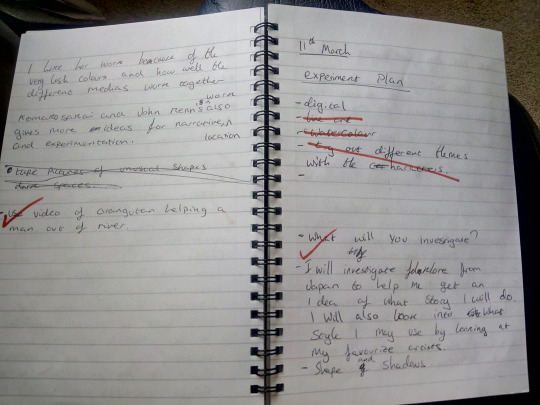 I like her work because of the
very lush colours and how well the
different medias work together
work
and John Renn's also
gives more ideas for narrative,
and experimentation. location
take pictures of unusual shapes
dark spaces.
- Use video of orangutan helping a
man out of river.
11th March
experiment Plan
- digital
- line art
- watercolour
- try out different themes
with the characters.
-
- What will you investigate?
- I will investigate folklore from
Japan to help me get an
idea of what story I will do.
I will also look into what
style I may use by looking at
my favourite artists.
- Shape and Shadows